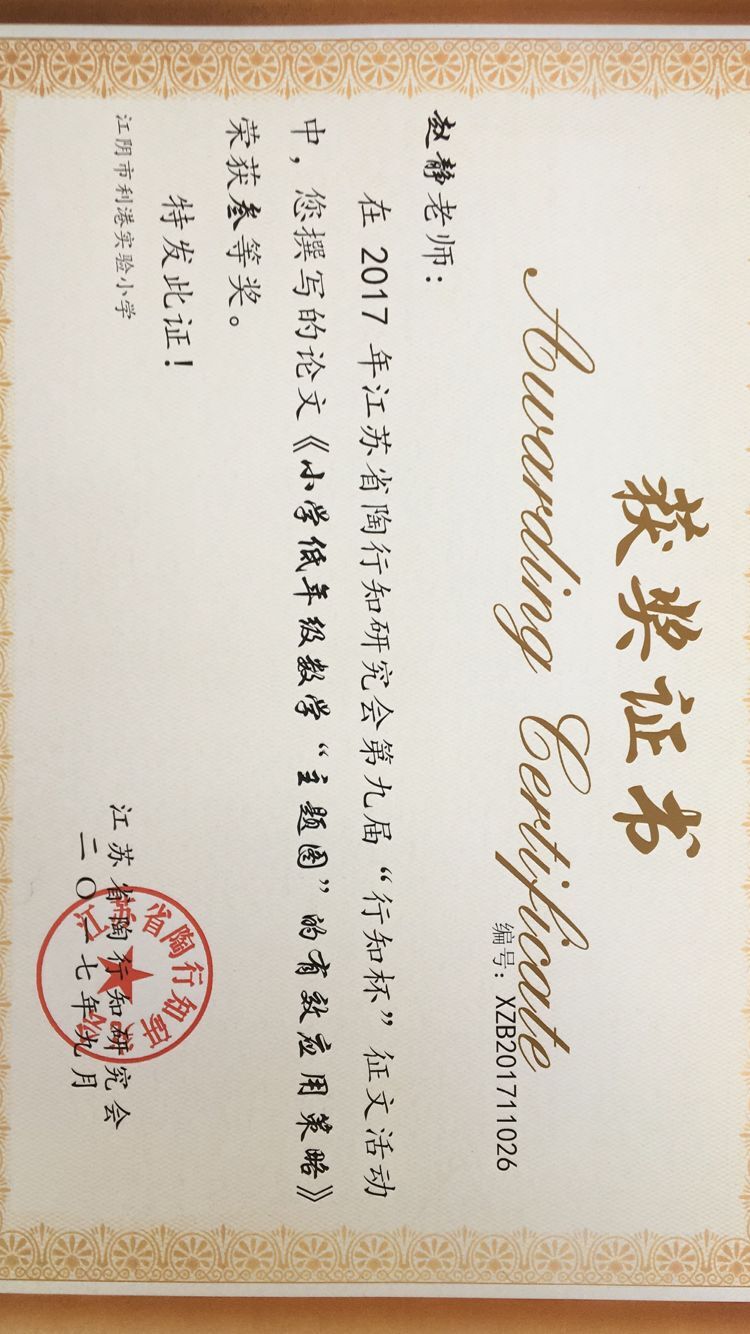 获奖证书
Awarding Certificate
编号：XZB201711026
赵静老师：
在 2017 年江苏省陶行知研究会第九届“行知杯”征文活动
中，您撰写的论文《小学低年级数学“主题图”的有效应用策略》
荣获叁等奖。
特发此证！
江阴市利港实验小学
江苏省陶行知研究会
二〇一七年九月
江苏省陶行知研究会